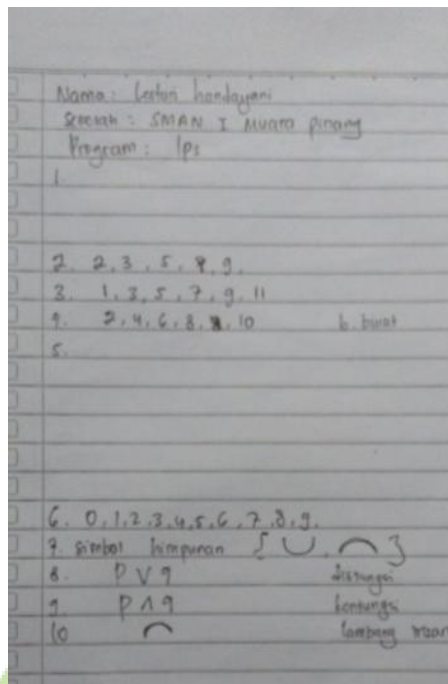 Nama: Lestari handayani
Sekolah : SMAN 1 Muara pinang
Program : Ips
1.
2. 2, 3, 5, 7, 9.
3. 1, 3, 5, 7, 9, 11
4. 2, 4, 6, 8, 10 b. bulat
5.
6. 0, 1, 2, 3, 4, 5, 6, 7, 8, 9.
7. simbol himpunan { ∪, ∩ }
8. P ∨ q
9. P ∧ q
10 ∩ lambang